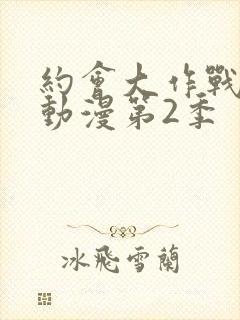 約會大作戰
動漫第2季
冰飛雪蘭